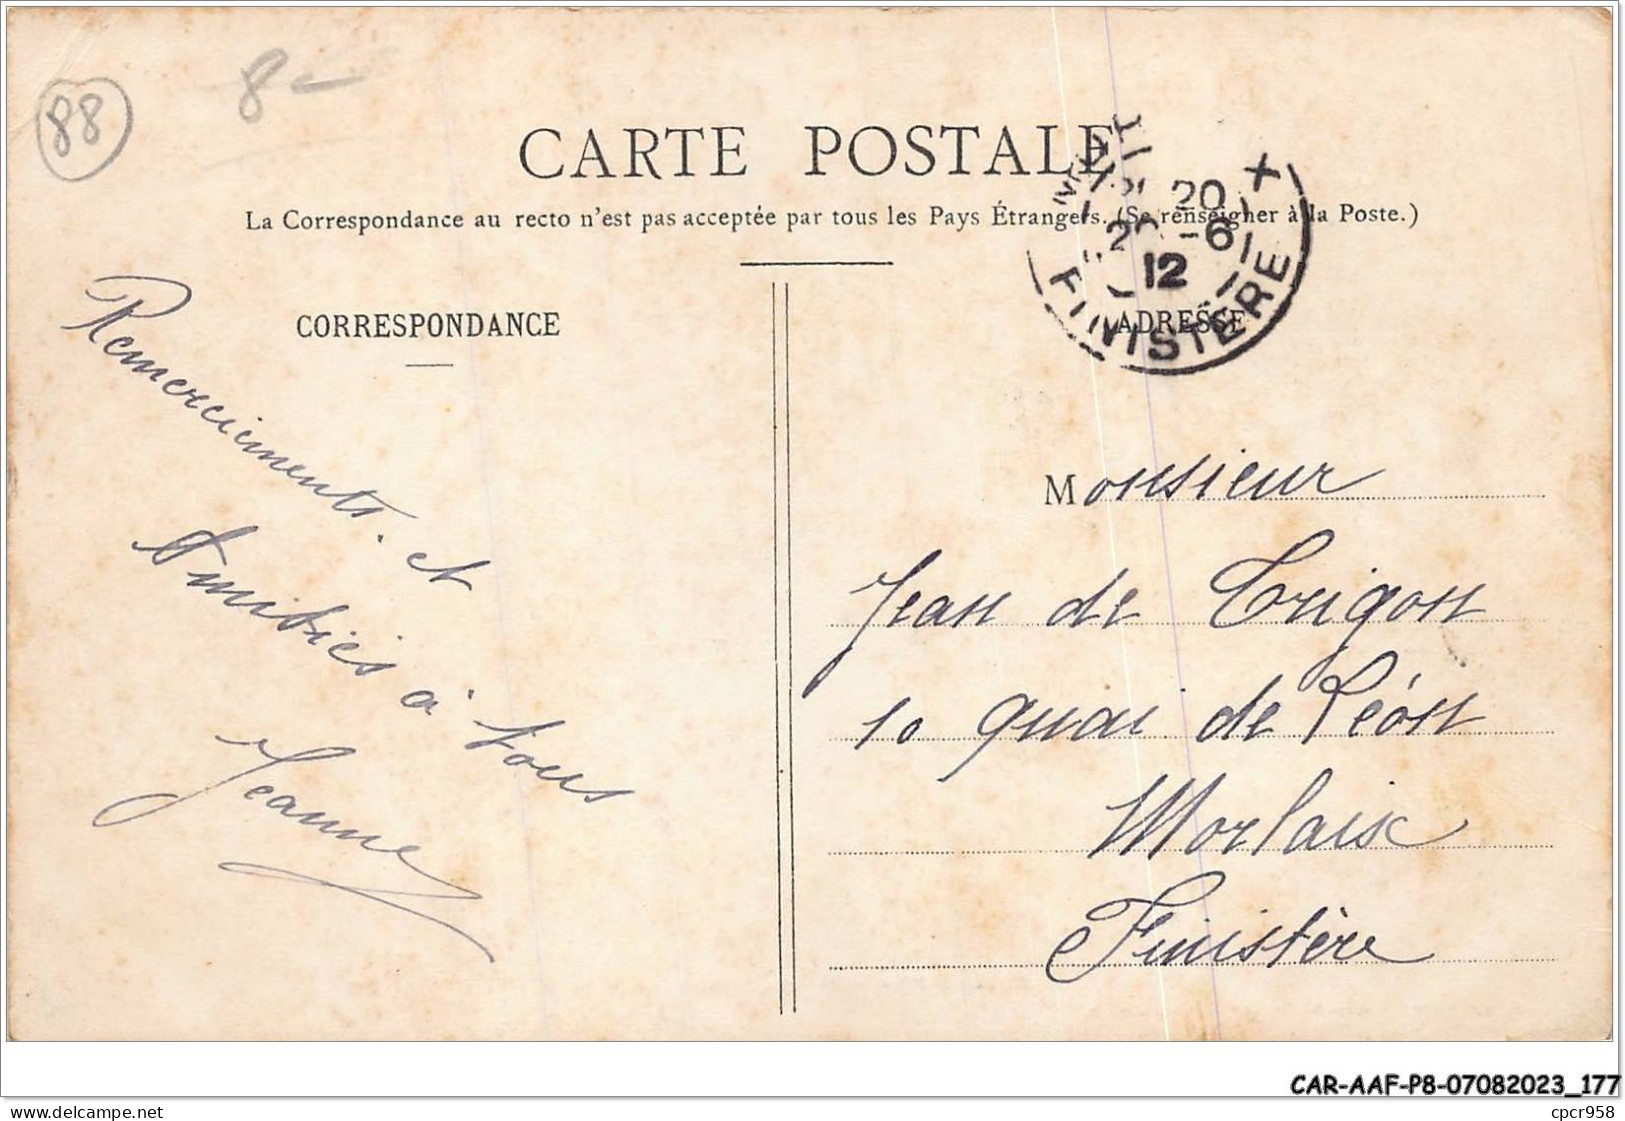 88
8-
CARTE POSTALE
La Correspondance au recto n'est pas acceptée par tous les Pays Étrangers. (Se renseigner à la Poste.)
20
20 -6
12
FINISTERE
CORRESPONDANCE
ADRESSE
Remerciements et
Amitiés à tous
Jeanne
Monsieur
Jean de Trigon
10 quai de Léon
Morlaix
Finistère
CAR-AAF-P8-07082023_177
delcampe.net
cpcr958